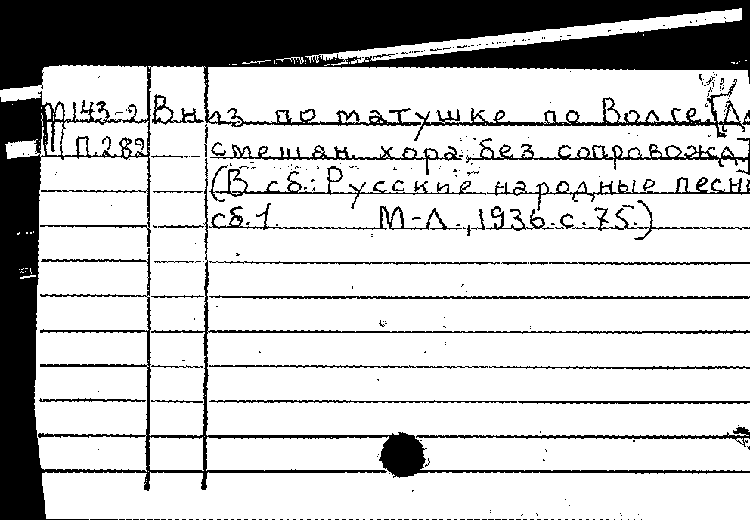 М143-2 Вниз по матушке по Волге. [Дл
П.282 смешан. хора, без сопровожд.]
(В сб.: Русские народные песни
сб.1. М-Л., 1936. с. 75.)